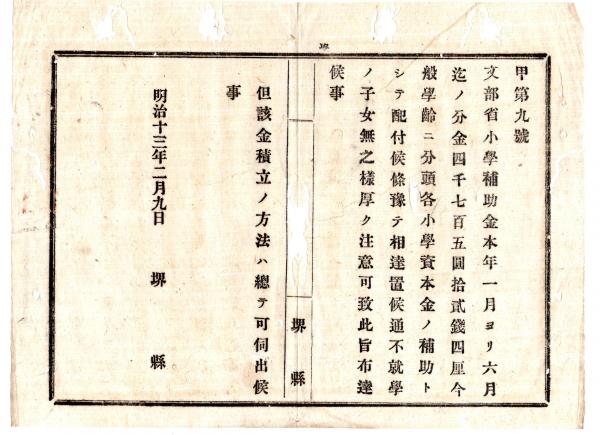 甲第九號
文部省小學補助金本年一月ヨリ六月
迄ノ分金四千七百五圓拾貳錢四厘今
般學齡ニ分頭各小學資本金ノ補助ト
シテ配付候條豫テ相達置候通不就學
ノ子女無之樣厚ク注意可致此旨布達
候事
堺縣
但該金積立ノ方法ハ總テ可伺出候
事
明治十三年二月九日 堺縣